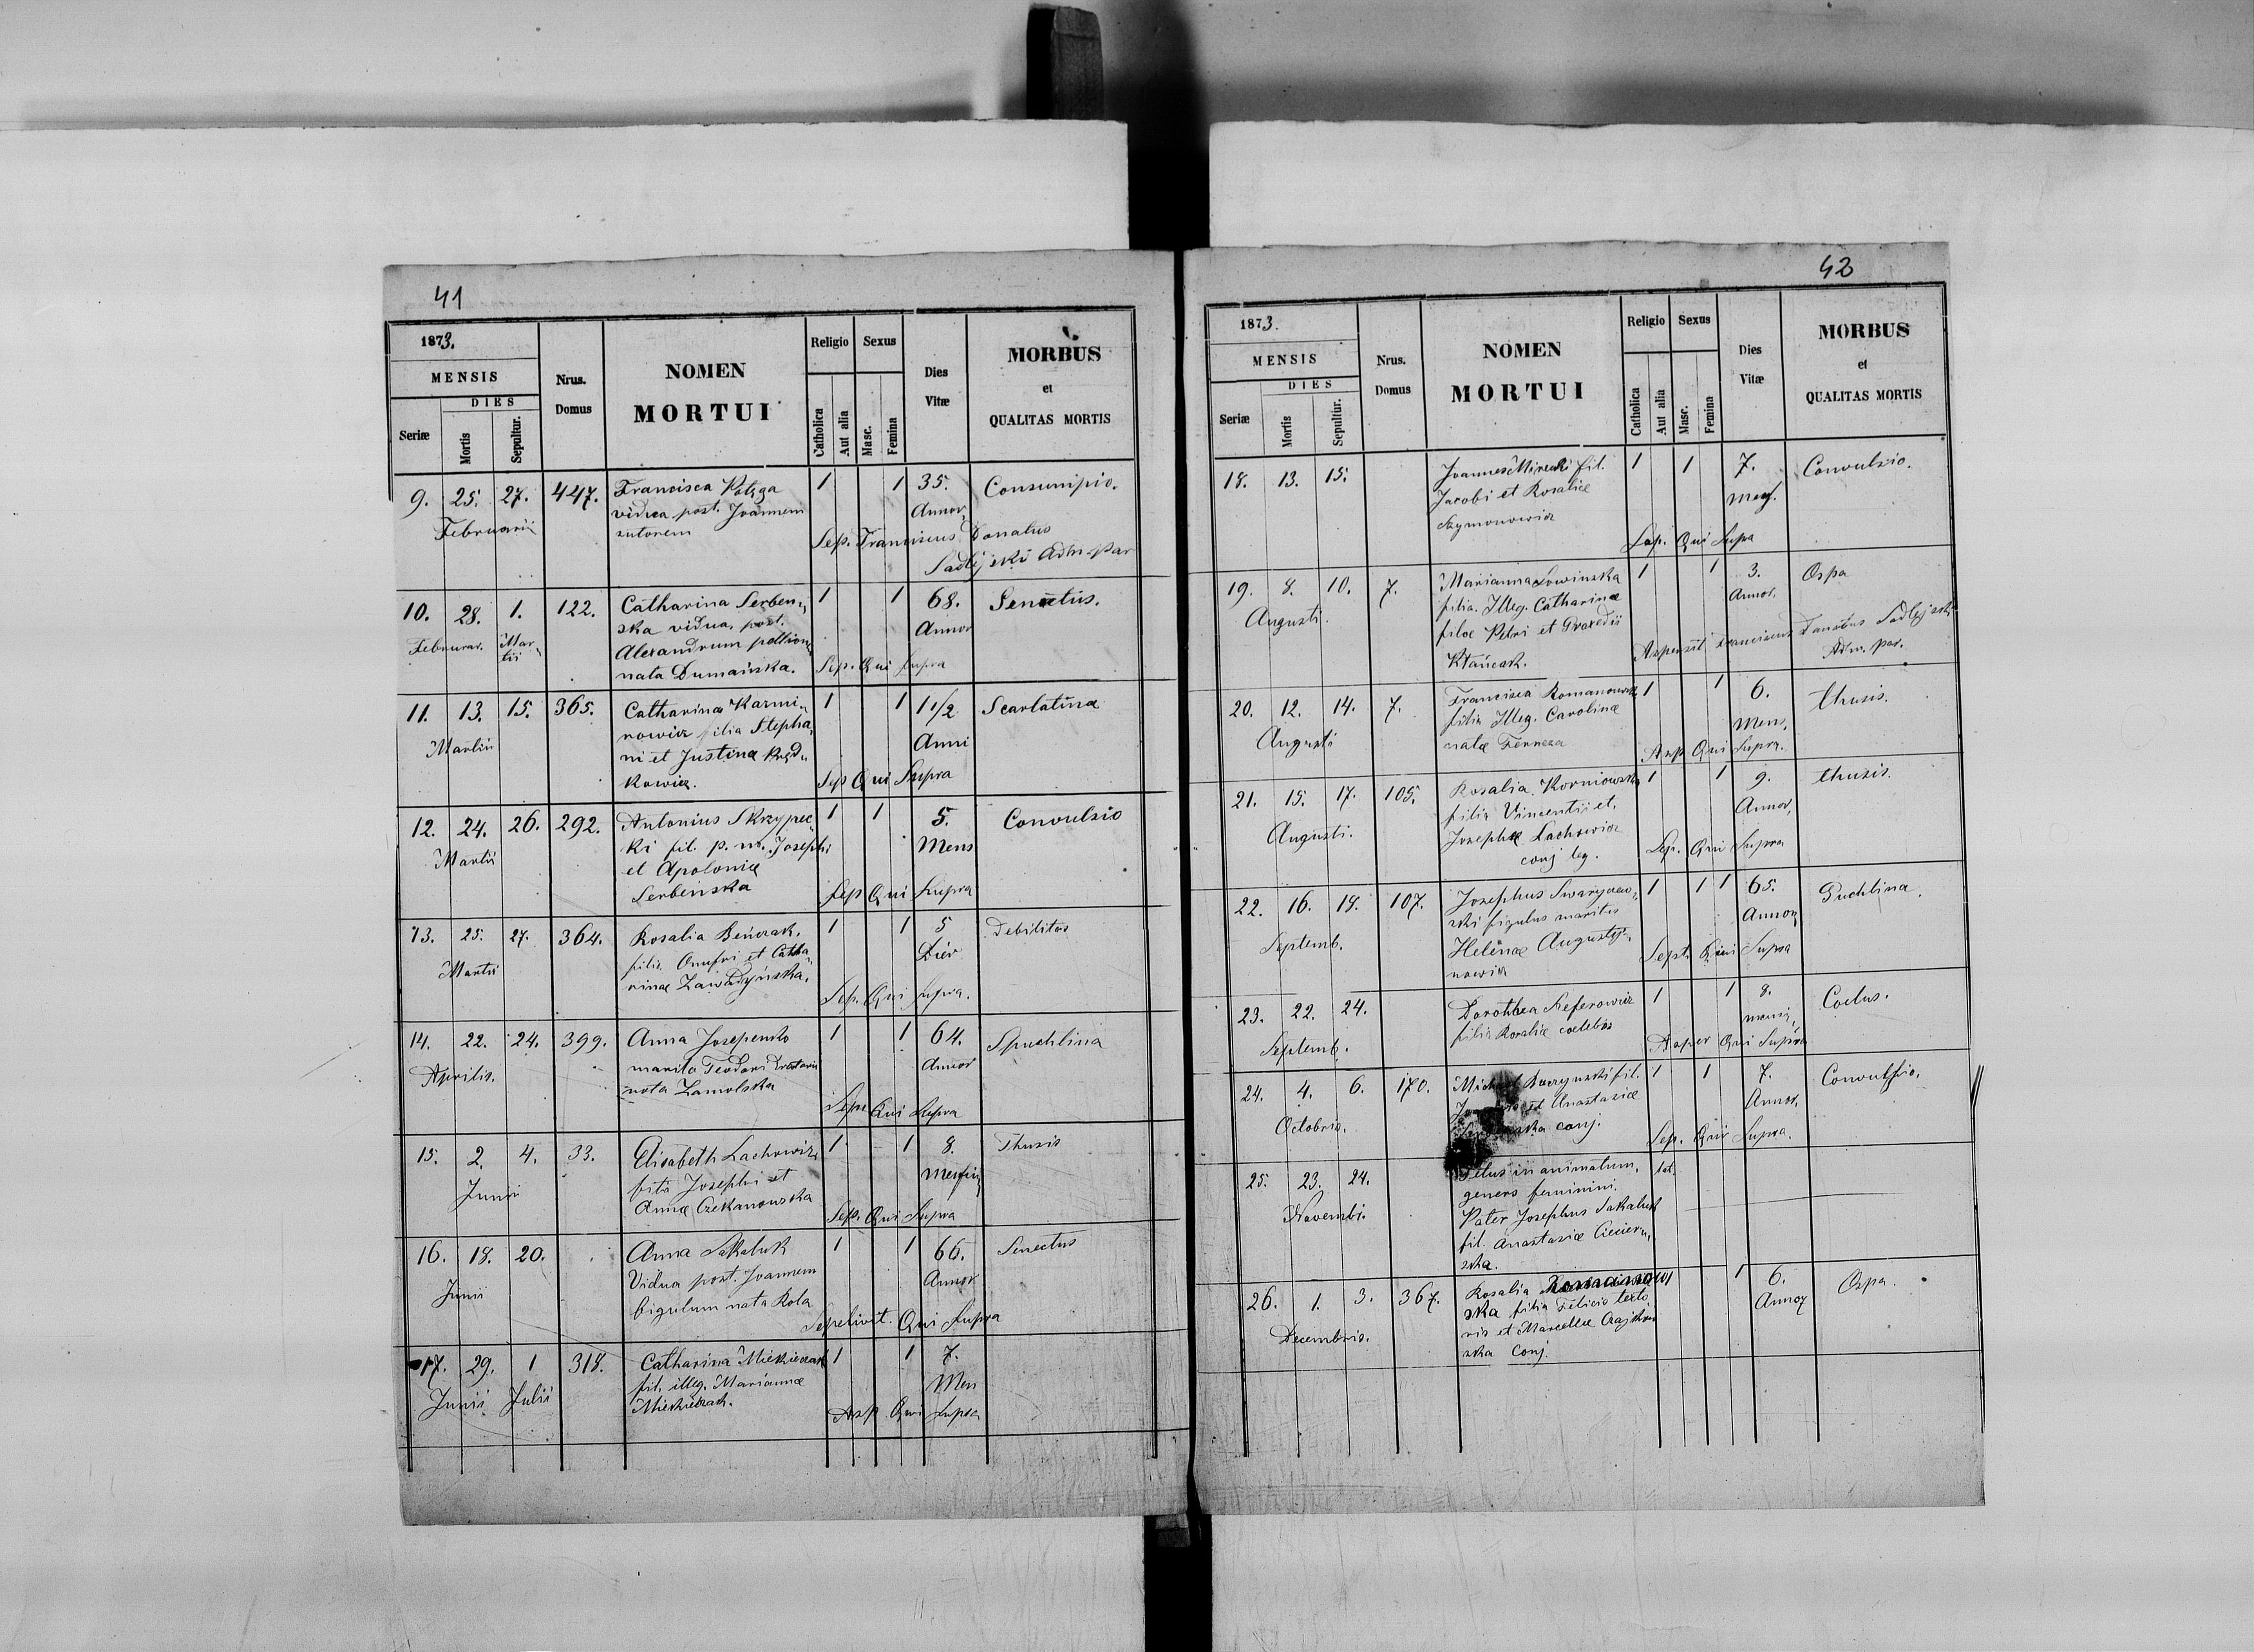 41
1873.
MENSIS
DIES
Seriæ Mortis Sepultur.
Nrus. Domus
NOMEN
MORTUI
Religio Sexus
Catholica Aut alia Masc. Femina
Dies Vitæ
MORBUS
et
QUALITAS MORTIS
9. 25. 27. 447. Francisca Potęga 1 1 35. Consumpio.
Februarii vidua post. Joannem Annor.
sutorem Sep. Franciscus Donatus
Sadlejski Adm. par
10. 28. 1. 122. Catharina Serben„ 1 1 68. Senectus.
Februar. Mar„ ska vidua, post. Annor
tii Alexandrum pellion„
nata Dumańska. Sep. Qui Supra
11. 13. 15. 365. Catharina Karmi„ 1 1 1 1/2 Scarlatina
Martii nowicz filia Stepha„ Anni
ni et Justina
kowicz. Sep Qui Supra
12. 24. 26. 292. Antonius Skrzypec„ 1 1 5. Convulsio
Martii ki fil. p. m. Josephi Mens
et Apolonia
Serbeńska Sep Qui Supra
13. 25. 27. 364. Rosalia Beńczak, 1 1 5 Debilitas
Martii filia Onufri et Catha„ Dier
rinae Zawadyńska. Sep. Qui Supra.
14. 22. 24. 399. Anna Josepenko 1 1 64. Spuchlina
Aprilis. marita Teodori Annor
nata Zamolska Sepe Qui Supra
15. 2. 4. 33. Elisabeth Lachowicz 1 1 8. Thusis
Junii filia Josephi et Mensiu
Annæ Czekanowska Sep. Qui Supra
16. 18. 20. Anna Sakaluk 1 1 66. Senectus
Junii Vidua post. Joannem Annor
figulum nata Rola Sepelivit. Qui Supra
17. 29. 1 318. Catharina Mickieczach 1 1 7.
Junii Julii fil. illeg. Mariannae Men
Mickieczach. Asp Qui Supra
42
1873.
MENSIS
DIES
Seriæ Mortis Sepultur.
Nrus. Domus
NOMEN
MORTUI
Religio Sexus
Catholica Aut alia Masc. Femina
Dies Vitæ
MORBUS
et
QUALITAS MORTIS
18. 13. 15. Joannes Mirecki fil. 1 1 7. Convulsio.
Jacobi et Rosaliæ
Szymonowicz Sep. Qui Supa
19. 8. 10. 7. Marianna Sowinska 1 1 3. Ospa
Augusti. filia. Illeg. Catharinæ Annor.
filæ Petri et Praxedis
Aspersit Franciscus Donatus Sadlejski
Adm. par.
20. 12. 14. 7. Francisca Romanowicz 1 1 6. thusis.
Augusti filia Illeg. Carolinæ Mens.
natæ Asp Qui Supra.
21. 15. 17. 105. Rosalia Korniowska 1 1 9. thusis.
Augusti. filia Vincentii et. Annor,
Josephæ Lachowicz
conj leg. Sep. Qui Supra
22. 16. 18. 107. Josephus Swaryczew„ 1 1 1 65. Puchlina.
Septemb. ski figulus maritus Annor
Helenæ Augusty„
nowicz Sept. Qui Supra
23. 22. 24. Dorothea Seferowicz 1 1 8. Coclus.
Septemb. filia Rosaliæ coelebis mensiu,
Asper Qui Supra
24. 4. 6. 170. Michael Buczynski fil. 1 1 7. Convulsio.
Octobris. et Anastasiæ Annor,
conj. Sep. Qui Supra.
25. 23. 24. Fetus in animatum, lat.
Novembr. geners feminini.
Pater Josephus Sakaluk
fil. Anastasiæ Cicier„
ska.
26. 1. 3. 367. Rosalia Romanow 1 1 6. Ospa.
Decembris. ska filia Felicis texto Annor
ris et Marcellæ
ska conj.